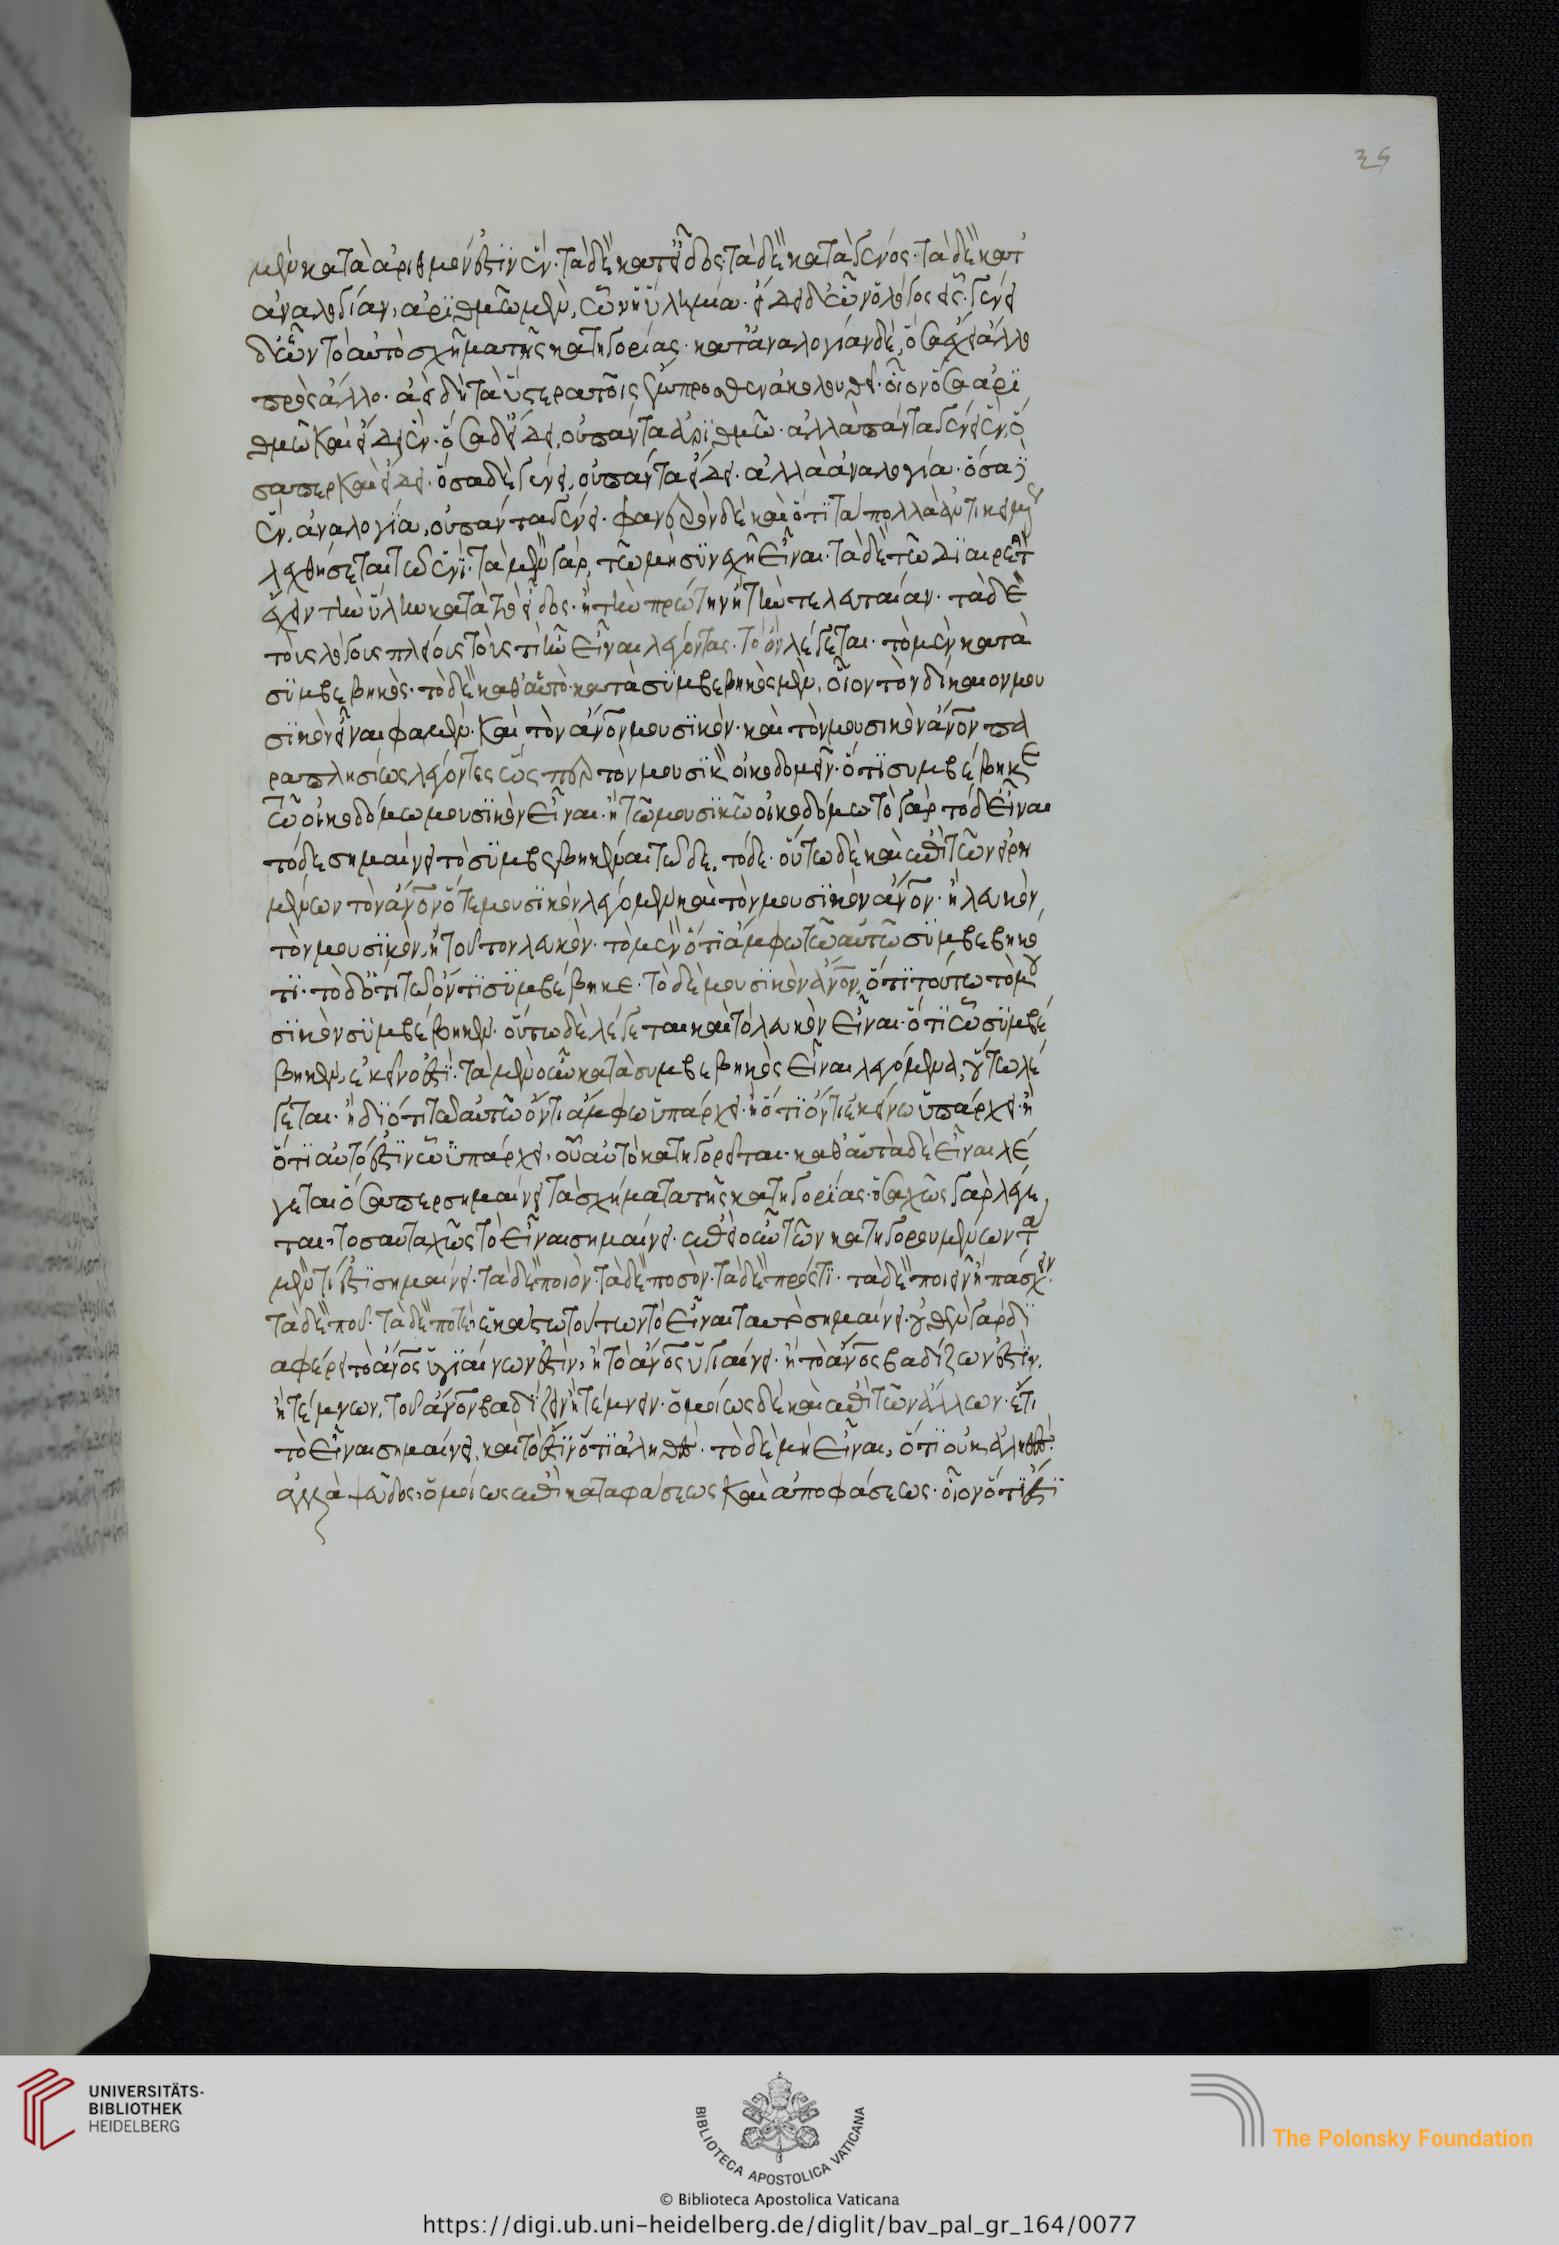 35
μὲν κατὰ ἀριθμόν ἐστϊν ἕν· τὰ δὲ κατ' εἶδος· τὰ δὲ κατὰ γένος· τὰ δὲ κατ'
ἀναλογίαν, ἀρϊθμῶ μὲν, ὧν ἡ ὕλη μία· εἴδει δ' ὧν ὁ λόγος εἷς· γένει
δ' ὧν τὸ αὐτὸ σχῆμα τῆς κατηγορίας· κατ' ἀναλογίαν δὲ, ὅσα ἔχει ἄλλο
πρὸς ἄλλο· ἀεὶ δὴ τὰ ὕστερα τοῖς ἔμπροσθεν ἀκολουθεῖ· οἷον ὅσα ἀρϊ
θμῶ καὶ εἴδει ἕν· ὅσα δ' εἴδει, οὐ πάντα ἀρϊθμῶ· ἀλλὰ πάντα γένει ἕν, ὅ
σαπερ καὶ εἴδει· ὅσα δὲ γένει, οὐ πάντα εἴδει· ἀλλὰ ἀναλογία· ὅσα δὲ
ἕν, ἀναλογία, οὐ πάντα γένει· φανερὸν δὲ καὶ ὅτϊ τὰ πολλὰ ἀντικειμένως
λεχθήσεται τῶ ἑνί· τὰ μὲν γὰρ, τῶ μὴ συνεχῆ εἶναι· τὰ δὲ τῶ διαιρετὴν
ἔχειν τὴν ὕλην κατὰ τὸ εἶδος· ἢ τὴν πρώτην ἢ τὴν τελευταίαν· τὰ δὲ
τοὺς λόγους πλείους τοὺς τί ἦν εἶναι λέγοντας· τὸ ὂν λέγεται· τὸ μὲν κατὰ
συμβεβηκὸς· τὸ δὲ καθ' αὑτὸ· κατὰ συμβεβηκὸς μὲν, οἷον τὸν δίκαιον μου
σϊκὸν εἶναι φαμὲν· καὶ τὸν ἄνον μουσϊκόν· καὶ τὸν μουσικὸν ἄνον πα
ραπλησίως λέγοντες ὥσπερ τὸν μουσϊκὸν οἰκοδομεῖν· ὅτϊ συμβέβηκε
τῶ οἰκοδόμω μουσϊκὸν εἶναι· ἢ τῶ μουσϊκῶ οἰκοδόμω τὸ γὰρ τόδ' εἶναι
τόδε σημαίνει τὸ συμβεβηκέναι τῶδε, τόδε· οὕτω δὲ καὶ ἐπὶ τῶν εἰρη
μένων τὸν ἄνον ὅτε μουσϊκὸν λέγομεν καὶ τὸν μουσϊκὸν ἄνον· ἢ λευκὸν,
τὸν μουσϊκὸν, ἢ τοῦτον λευκόν· τὸ μὲν ὅτϊ ἄμφω τῶ αὐτῶ συμβεβηκό
τϊ· τὸ δ' ὅτι τῶ ὄντι συμβέβηκε· τὸ δὲ μουσϊκὸν ἄνον, ὅτϊ τούτω τὸ μου
σϊκὸν συμβέβηκεν· οὕτω δὲ λέγεται καὶ τὸ λευκὸν εἶναι· ὅτϊ ὧ συμβέ
βηκεν, ἐκεῖνο ἐστϊ· τὰ μὲν οὖν κατὰ συμβεβηκὸς εἶναι λεγόμενα, οὕτω λέ
γεται· ἢ δϊότι τῶ αὐτῶ ὄντι ἄμφω ὑπάρχει· ἢ ὅτϊ ὄντι ἐκείνω ὑπάρχει· ἢ
ὅτϊ αὐτό ἐστϊν ὧ ὑπάρχει, οὗ αὐτὸ κατηγορεῖται· καθ' αὑτὰ δὲ εἶναι λέ
γεται ὅσαπερ σημαίνει τὰ σχήματα τῆς κατηγορίας· ὁσαχῶς γὰρ λέγε
ται, τοσαυταχῶς τὸ εἶναι σημαίνει· ἐπεὶ οὖν τῶν κατηγορουμένων τὰ
μὲν τί ἐστϊ σημαίνει· τὰ δὲ ποιὸν· τὰ δὲ ποσὸν· τὰ δὲ πρός τϊ· τὰ δὲ ποιεῖν ἢ πάσχειν·
τὰ δὲ ποῦ· τὰ δὲ ποτὲ, ἑκάστω τούτων τὸ εἶναι ταὐτὸ σημαίνει· οὐθὲν γὰρ δϊ
αφέρει τὸ ἄνος ὑγϊαίνων ἐστὶν, ἢ τὸ ἄνος ὑγιαίνει· ἢ τὸ ἄνος βαδίζων ἐστὶν,
ἢ τέμνων, τοῦ ἄνον βαδίζειν ἢ τέμνειν· ὁμοίως δὲ καὶ ἐπὶ τῶν ἄλλων· ἔτι
τὸ εἶναι σημαίνει, καὶ τὸ ἔστϊν ὅτϊ ἀληθὲς· τὸ δὲ μὴ εἶναι, ὅτϊ οὐκ ἀληθὲς·
ἀλλὰ ψεῦδος, ὁμοίως ἐπὶ καταφάσεως καὶ ἀποφάσεως· οἷον ὅτϊ ἔστϊ
UNIVERSITÄTS-
BIBLIOTHEK
HEIDELBERG
BIBLIOTECA APOSTOLICA VATICANA
© Biblioteca Apostolica Vaticana
The Polonsky Foundation
https://digi.ub.uni-heidelberg.de/diglit/bav_pal_gr_164/0077